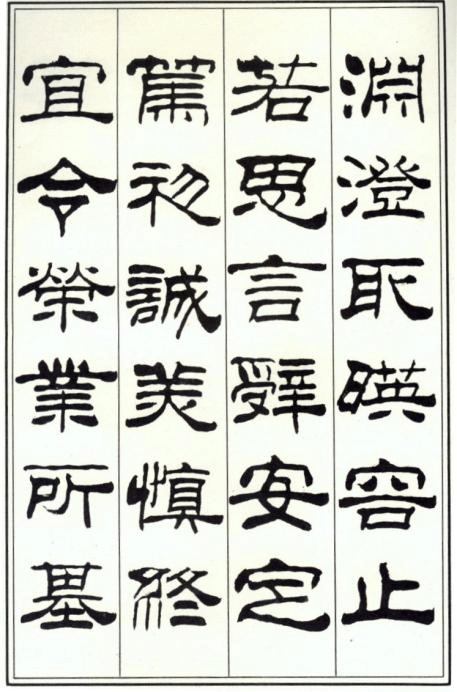 淵澄取暎容止
若思言辭安定
篤初誠美慎終
宜令榮業所基